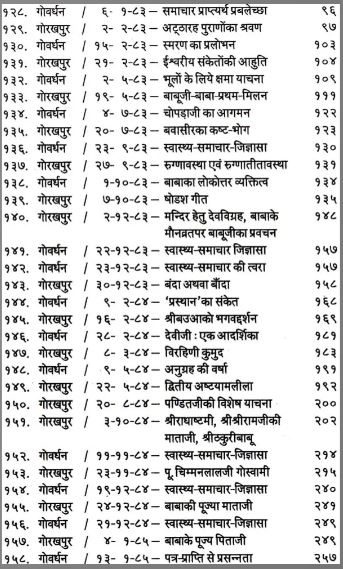 १२८. गोवर्धन / ६- १-८३ — समाचार प्राप्त्यर्थ प्रबलेच्छा ९६
१२९. गोरखपुर / २- २-८३ — अट्ठारह पुराणोंका श्रवण ९७
१३०. गोवर्धन / १५- २-८३ — स्मरण का प्रलोभन १०३
१३१. गोरखपुर / २१- २-८३ — ईश्वरीय संकेतोंकी आहुति १०४
१३२. गोवर्धन / २- ५-८३ — भूलों के लिये क्षमा याचना १०९
१३३. गोरखपुर / १९- ५-८३ — बाबूजी-बाबा-प्रथम-मिलन १११
१३४. गोरखपुर / ४- ७-८३ — चोपड़ाजी का आगमन १२२
१३५. गोरखपुर / २०- ७-८३ — बवासीरका कष्ट-भोग १२३
१३६. गोवर्धन / २३- ९-८३ — स्वास्थ्य-समाचार-जिज्ञासा १३०
१३७. गोरखपुर / २७- ९-८३ — रुग्णावस्था एवं रुग्णातीतावस्था १३१
१३८. गोवर्धन / १-१०-८३ — बाबाका लोकोत्तर व्यक्तित्व १३४
१३९. गोरखपुर / ७-१०-८३ — षोडश गीत १३५
१४०. गोरखपुर / २-१२-८३ — मन्दिर हेतु देवविग्रह, बाबाके १४८
मौनव्रतपर बाबूजीका प्रवचन
१४१. गोवर्धन / २२-१२-८३ — स्वास्थ्य-समाचार जिज्ञासा १५७
१४२. गोवर्धन / २३-१२-८३ — स्वास्थ्य-समाचार की त्वरा १५७
१४३. गोरखपुर / ३०-१२-८३ — बंदा अथवा बाँदा १५८
१४४. गोवर्धन / ९- २-८४ — 'प्रस्थान' का संकेत १६८
१४५. गोरखपुर / १६- २-८४ — श्रीबउआको भगवद्दर्शन १६९
१४६. गोवर्धन / २८- २-८४ — देवीजी : एक आदर्शिका १८१
१४७. गोरखपुर / ८- ३-८४ — विरहिणी कुमुद १८३
१४८. गोवर्धन / ९- ५-८४ — अनुग्रह की वर्षा १९१
१४९. गोरखपुर / २२- ५-८४ — द्वितीय अष्टयामलीला १९२
१५०. गोवर्धन / २०- ८-८४ — पण्डितजीकी विशेष याचना २००
१५१. गोरखपुर / ३-१०-८४ — श्रीराधाष्टमी, श्रीश्रीरामजीकी २०२
माताजी, श्रीठकुरीबाबू
१५२. गोवर्धन / ११-११-८४ — स्वास्थ्य-समाचार-जिज्ञासा २१४
१५३. गोरखपुर / २३-११-८४ — पू. चिम्मनलालजी गोस्वामी २१५
१५४. गोवर्धन / १९-१२-८४ — स्वास्थ्य-समाचार-जिज्ञासा २४०
१५५. गोरखपुर / २४-१२-८४ — बाबाकी पूज्या माताजी २४१
१५६. गोवर्धन / २१-१२-८४ — स्वास्थ्य-समाचार-जिज्ञासा २४९
१५७. गोरखपुर / ४- १-८५ — बाबाके पूज्य पिताजी २४९
१५८. गोवर्धन / १३- १-८५ — पत्र-प्राप्ति से प्रसन्नता २५७